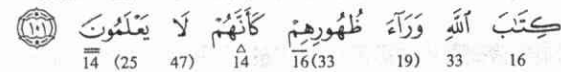 كِتَٰبَ ٱللَّهِ وَرَآءَ ظُهُورِهِمْ كَأَنَّهُمْ لَا يَعْلَمُونَ ١٠١
16 33 19) 16(33 14 47) 14 (25